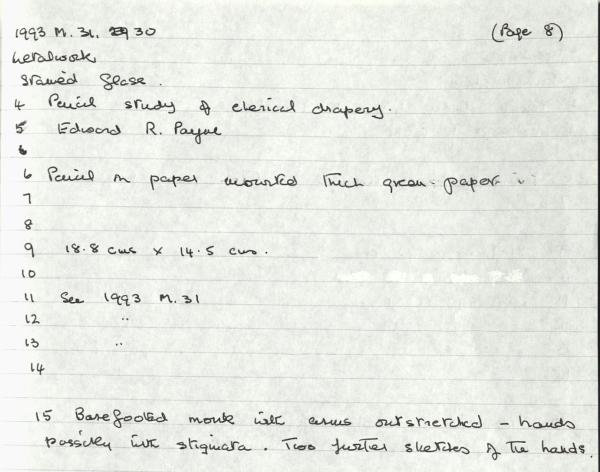 1993 M. 31. 30 (Page 8)
Metalwork
Stained Glass.
4 Pencil study of clerical drapery.
5 Edward R. Payne
6
6 Pencil on paper mounted thick green paper
7
8
9 18.8 cms x 14.5 cms.
10
11 See 1993 M.31
12 "
13 "
14
15 Barefooted monk with arms outstretched - hands
possibly with stigmata. Two further sketches of the hands.